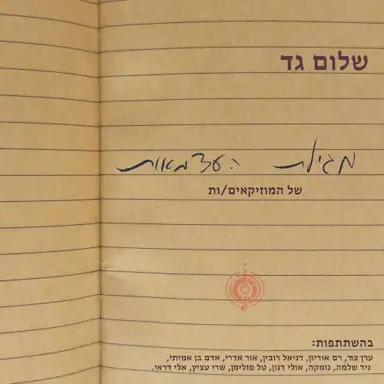 שלום גד
מגילת העצמאות
של המוזיקאים/ות
בהשתתפות:
ערן צור, רם אוריון, דניאל רובין, אור אדרי, אדם בן אמיתי,
ניר שלמה, נומקה, אולי דנון, טל סולימן, שרי עציץ, אלי דראי.